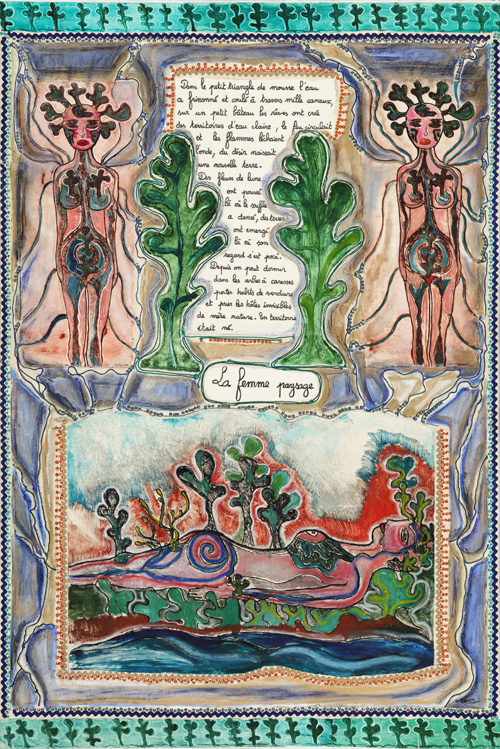 Dans le petit triangle de mousse l'eau
a frissonné et coulé à travers mille canaux,
sur un petit bateau les rêves ont créé
des territoires d'eau claire, le feu circulait
et les flammes léchaient
l'onde, du désir naissait
une nouvelle terre.
Des fleurs de lune
ont poussé
là où le souffle
a dansé, des terres
ont émergé
là où son
regard s'est posé.
Depuis on peut dormir
dans les arbres à caresses
porter habits de verdure
et prier les hôtes invisibles
de mère nature. Un territoire
était né.
La femme paysage